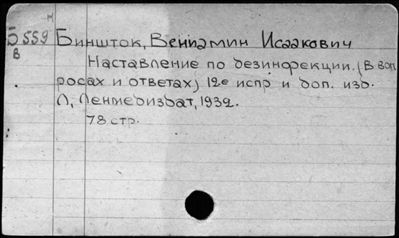 Б559 Биншток, Вениамин Исаакович
В
Наставление по дезинфекции. (В воп
росах и ответах) 12е испр и доп. изд.
Л, Ленмедиздат, 1932.
78 стр.